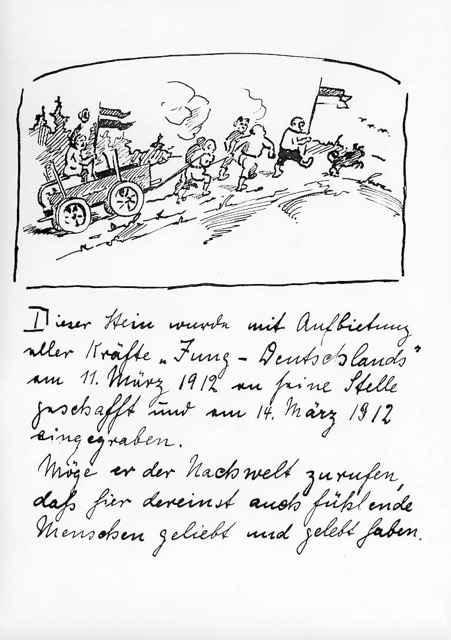 Dieser Stein wurde mit Aufbietung
aller Kräfte „Jung - Deutschlands"
am 11. März 1912 an seine Stelle
geschafft und am 14. März 1912
eingegraben.
Möge er der Nachwelt zurufen,
daß hier dereinst auch fühlende
Menschen geliebt und gelebt haben.